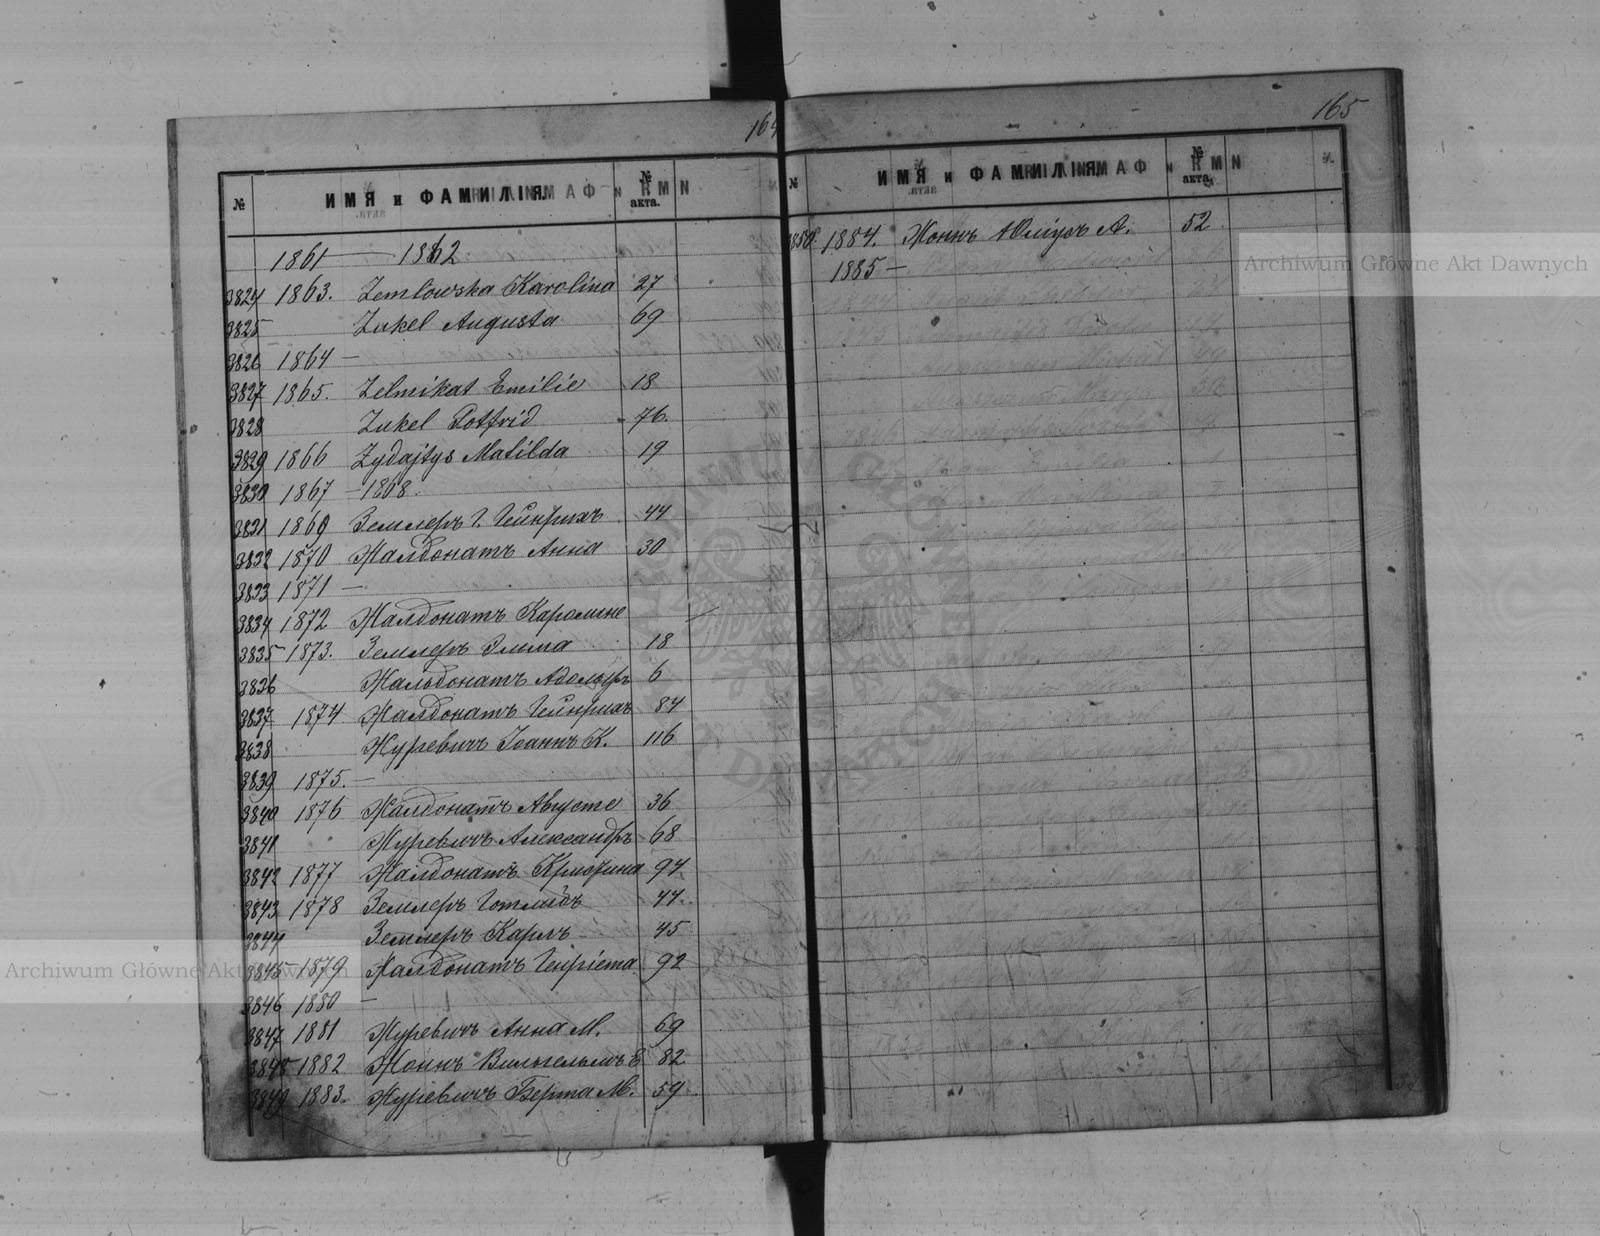 164
№ ИМЯ и ФАМИЛІЯ № акта.
1861 — 1862
3824 1863. Zemlowska Karolina 27
3825 Zukel Augusta 69
3826 1864 —
3827 1865. Zelmikat Emilie 18
3828 Zukel Gotfrid 76.
3829 1866 Zydajtys Matilda 19
3830 1867 — 1868.
3831 1869 Землеръ Г. Гейнрихъ 44
3832 1870 Жалдонатъ Анна 30
3833 1871 —
3834 1872 Жалдонатъ Каролине
3835 1873. Землеръ Эмма 18
3836 Жальдонатъ Адольфъ 6
3837 1874 Жалдонатъ Гейнрихъ 84
3838 Журевичъ Іоаннъ К. 116
3839 1875. —
3840 1876 Жалдонатъ Августе 36
3841 Журевичъ Александръ 68
3842 1877 Жалдонатъ Кристина 94
3843 1878 Землеръ Готлибъ 44.
3844 Землеръ Карлъ 45
3845 1879 Жалдонатъ Генріета 92
3846 1880 —
3847 1881 Журевичъ Анна М. 69
3848 1882 Жоннъ Вильгельмъ Е 82
3849 1883. Журевичъ Берта М. 59
165
№ ИМЯ и ФАМИЛІЯ № акта.
3850 1884. Жоннъ Юліусъ А. 52
1885 —
Archiwum Główne Akt Dawnych
Archiwum Główne Akt Dawnych